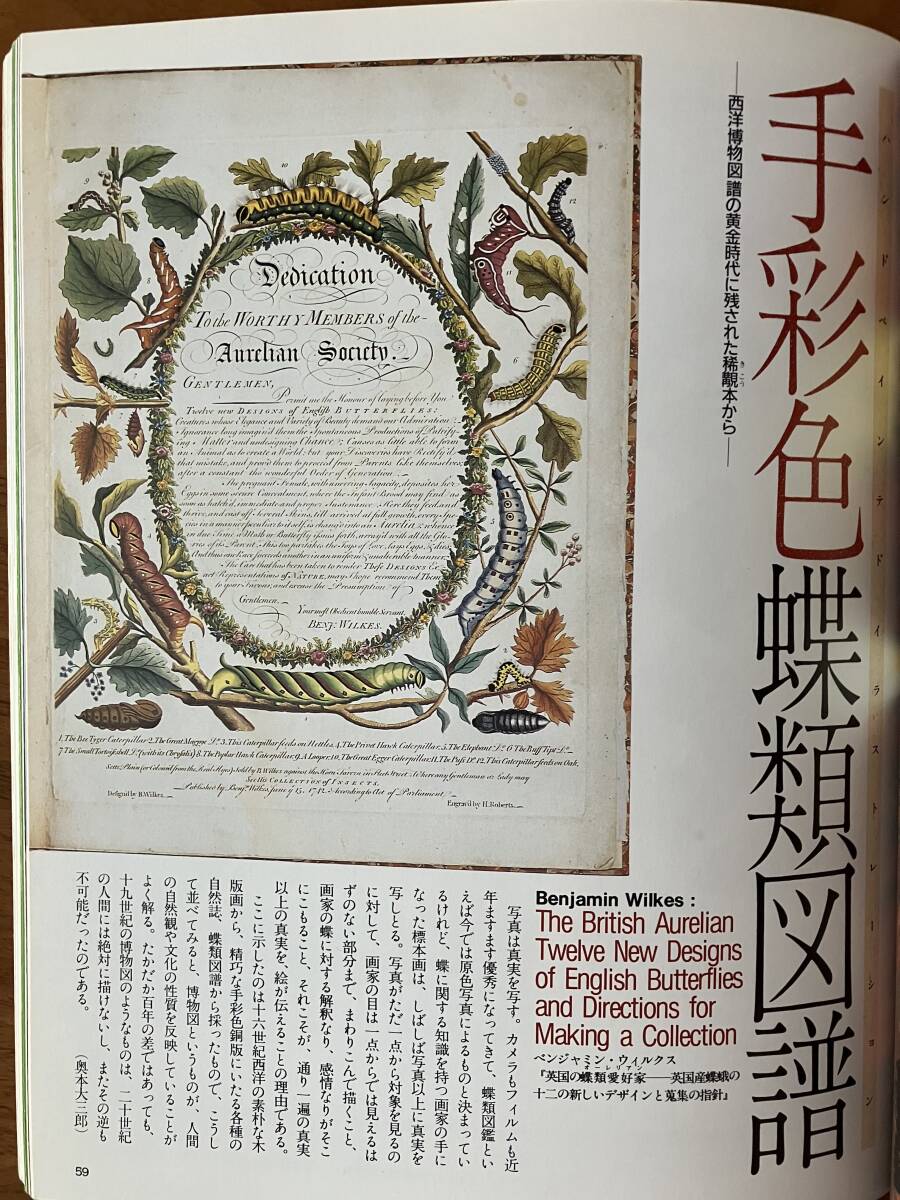 手彩色蝶類図譜
ハンドペインテドイラストレーション
──西洋博物図譜の黄金時代に残された稀覯本から──
きこう
Dedication
To the WORTHY MEMBERS of the
Aurelian Society.
GENTLEMEN,
Permit me the Honour of laying before You
Twelve new DESIGNS of English BUTTERFLIES:
Creatures whose Elegance and Variety of Beauty demand our Admiration:
Ignorance long imagin'd them the Spontaneous Productions of Putrify-
ing Matter and undesigning Chance; Causes as little able to form
an Animal as to create a World: but your Discoveries have Rectify'd
that mistake, and prov'd them to proceed from Parents like themselves,
after a constant tho' wonderful Order of Generation.
The pregnant Female, with unerring Sagacity, deposites her
Eggs in some secure Concealment, where the Infant Brood may find as
soon as hatch'd, immediate and proper Sustenance. Here they feed and
thrive, and cast off Several Skins, till arriv'd at full growth, every Spe-
cies in a manner peculiar to itself, is chang'd into an Aurelia; whence
in due Time a Moth or Butterfly issues forth, array'd with all the Glo-
ries of its Parent. This too partakes the Joys of Love, lays Eggs, & dies:
And thus one Race succeeds another in an uniform & unalterable manner.
The Care that has been taken to render These DESIGNS Ex-
act Representations of NATURE, may I hope recommend Them
to your Favour, and excuse the Presumption of
Gentlemen.
Your most Obedient humble Servant,
BENJ: WILKES.
1. The Bee Tyger Caterpillar 2. The Great Magpye Do. 3. This Caterpillar feeds on Nettles. 4. The Privet Hawk Caterpillar. 5. The Elephant Do. 6 The Buff Tip Do.
7. The Small Tortoishell Do. (with its Chrysalis) 8. The Poplar Hawk Caterpillar. 9. A Looper. 10. The Great Egger Caterpillar. 11. The Puss Do. 12. This Caterpillar feeds on Oak.
Setts Plain (or Colour'd from the Real Flyes) Sold by B. Wilkes against the Horn Tavern in Fleet Street. Where any Gentleman or Lady may
See His COLLECTION of INSECTS.
Published by Benj. Wilkes, June ye 15. 1742. According to Act of Parliament.
Design'd by B. Wilkes.
Engrav'd by H. Roberts.
Benjamin Wilkes :
The British Aurelian
Twelve New Designs
of English Butterflies
and Directions for
Making a Collection
ベンジャミン・ウィルクス
オーレリアン
『英国の蝶類愛好家──英国産蝶蛾の
十二の新しいデザインと蒐集の指針』
写真は真実を写す。カメラもフィルムも近
年ますます優秀になってきて、蝶類図鑑とい
えば今では原色写真によるものと決まってい
るけれど、蝶に関する知識を持つ画家の手に
なった標本画は、しばしば写真以上に真実を
写しとる。写真がただ一点から対象を見るの
に対して、画家の目は一点からでは見えるは
ずのない部分まで、まわりこんで描くこと、
画家の蝶に対する解釈なり、感情なりがそこ
にこもること、それこそが、通り一遍の真実
以上の真実を、絵が伝えることの理由である。
ここに示したのは十六世紀西洋の素朴な木
版画から、精巧な手彩色銅版にいたる各種の
自然誌、蝶類図譜から採ったもので、こうし
て並べてみると、博物図というものが、人間
の自然観や文化の性質を反映していることが
よく解る。たかだか百年の差ではあっても、
十九世紀の博物図のようなものは、二十世紀
の人間には絶対に描けないし、またその逆も
不可能だったのである。
（奥本大三郎）
59